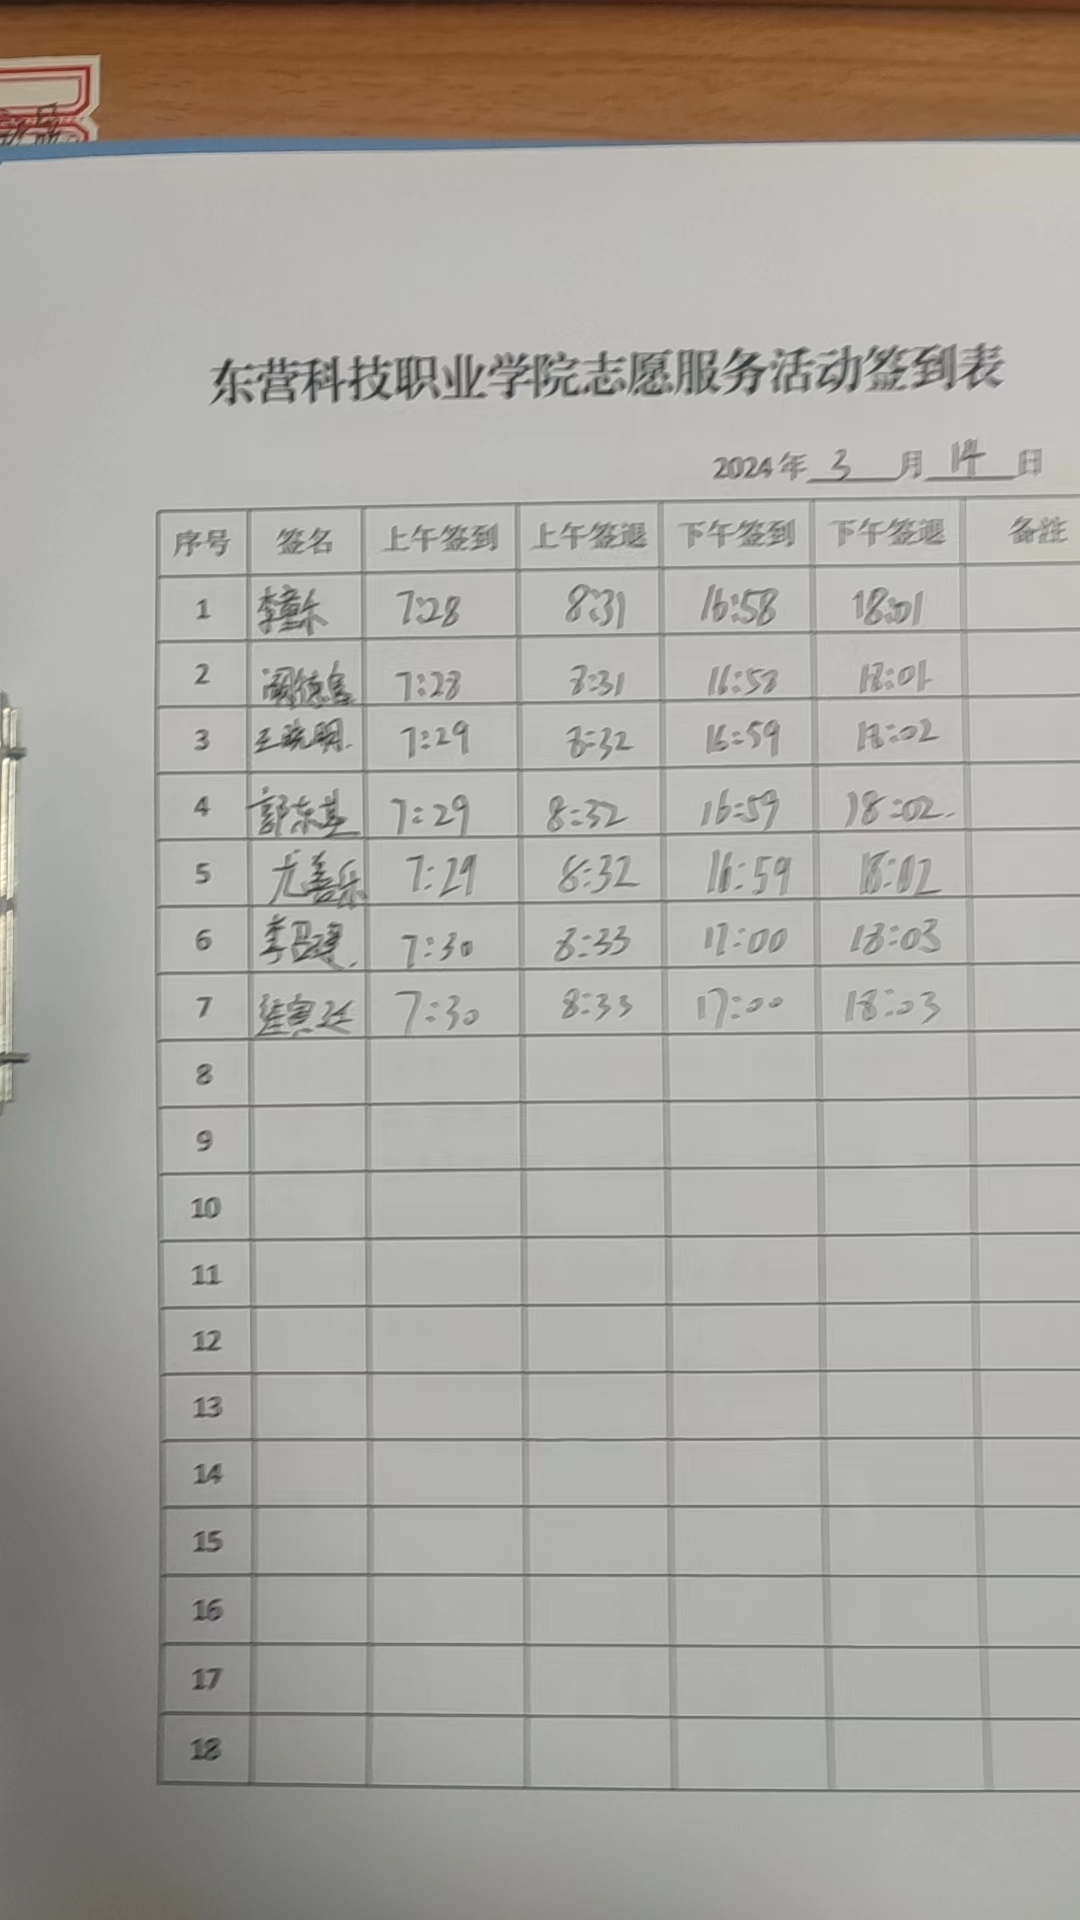 东营科技职业学院志愿服务活动签到表
2024年 3 月 14 日
序号 签名 上午签到 上午签退 下午签到 下午签退 备注
1 7:28 8:31 16:58 18:01
2 7:28 8:31 16:58 18:01
3 王晓明 7:29 8:32 16:59 18:02
4 郭东基 7:29 8:32 16:59 18:02
5 尤善乐 7:29 8:32 16:59 18:02
6 7:30 8:33 17:00 18:03
7 7:30 8:33 17:00 18:03
8
9
10
11
12
13
14
15
16
17
18